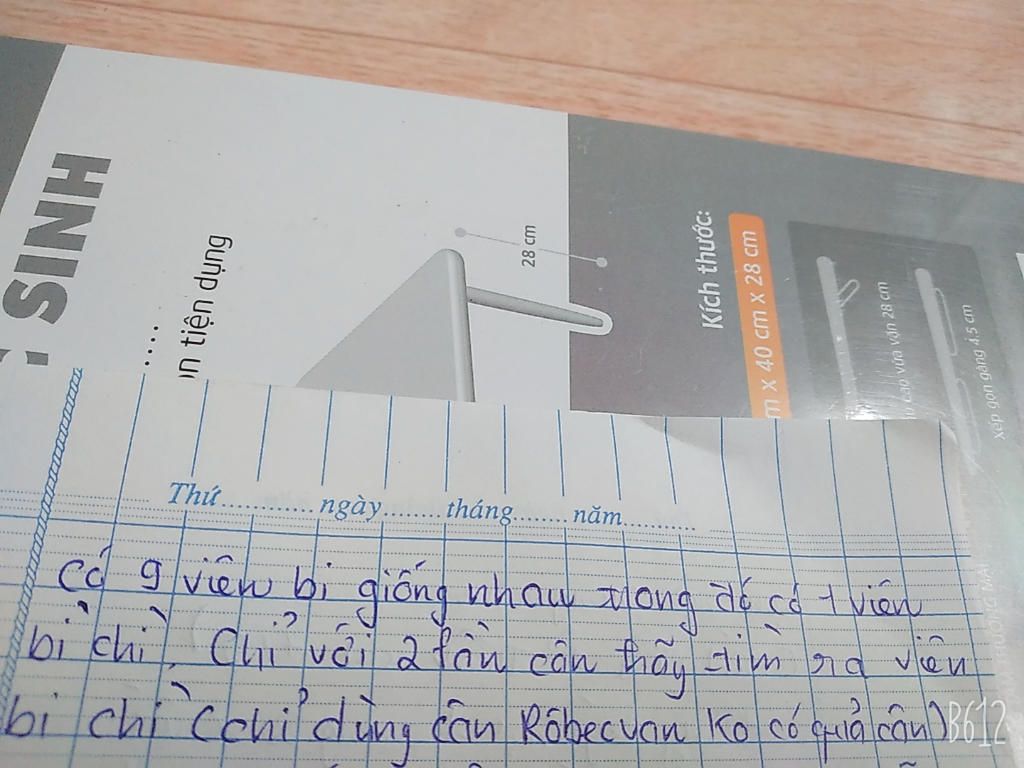 SINH
....
ện dụng
28 cm
Kích thước:
m x 40 cm x 28 cm
vừa vặn 28 cm
xếp gọn gàng 4.5 cm
Thứ............ngày........tháng.......năm..........
Có 9 viên bi giống nhau trong đó có 1 viên
bi chì. Chỉ với 2 lần cân hãy tìm ra viên
bi chì (chỉ dùng cân Rôbecvan ko có quả cân)
B612